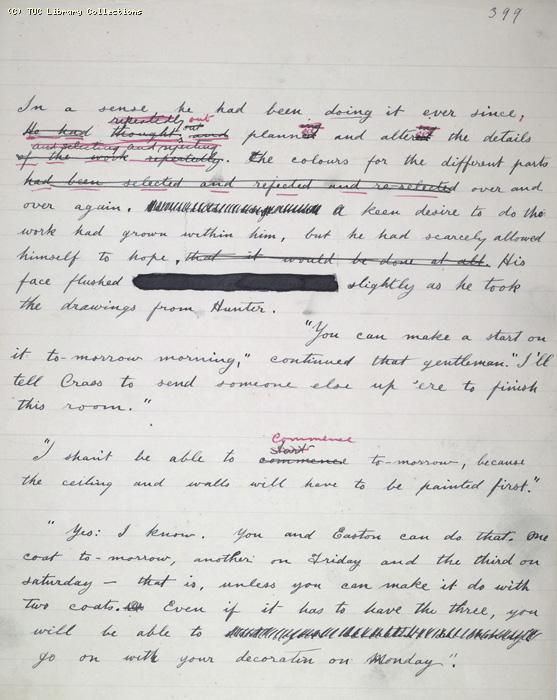 (C) TUC Library Collections
399
In a sense he had been doing it ever since,
repeatedly out
He had thought out and planned ing and altered ing the details
and selecting and rejecting
of the work repeatedly. the colours for the different parts
had been selected and rejected and re-selected over and
over again. A keen desire to do the
work had grown within him, but he had scarcely allowed
himself to hope, that it would be done at all. His
face flushed slightly as he took
the drawings from Hunter.
"You can make a start on
it to-morrow morning," continued that gentleman. "I'll
tell Crass to send someone else up 'ere to finish
this room."
Commence
start
"I shan't be able to commence to-morrow, because
the ceiling and walls will have to be painted first."
"Yes: I know. You and Easton can do that. One
coat to-morrow, another on Friday and the third on
saturday — that is, unless you can make it do with
two coats. Even if it has to have the three, you
will be able to
go on with your decoration on Monday".